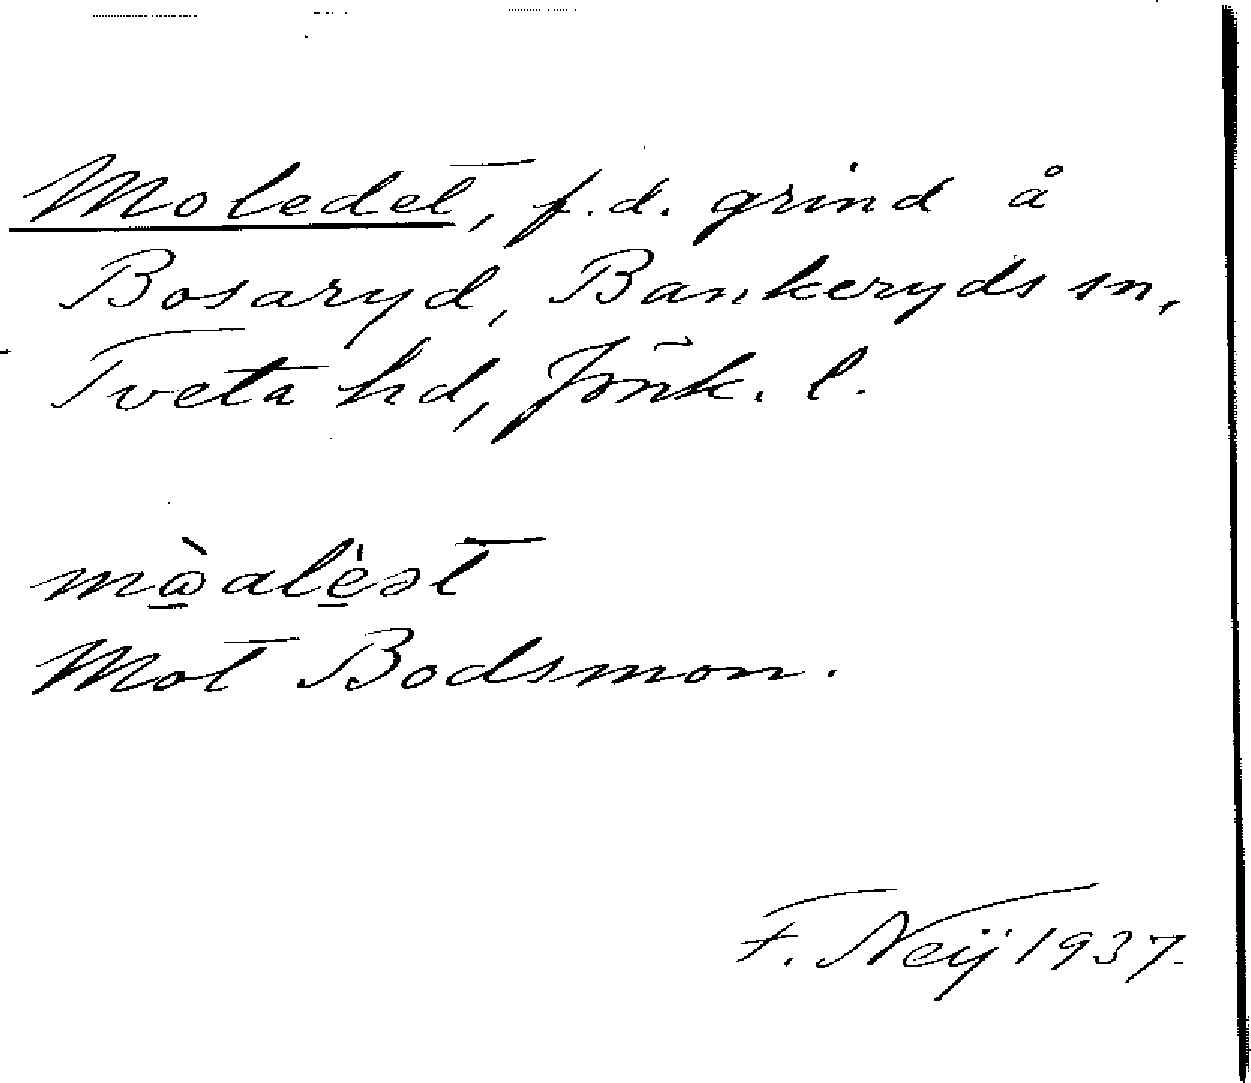 Moledet, f.d. grind å
Bosaryd, Bankeryds sn,
Tveta hd, Jönk. l.
Mot Bodsmon.
F. Neij 1937.